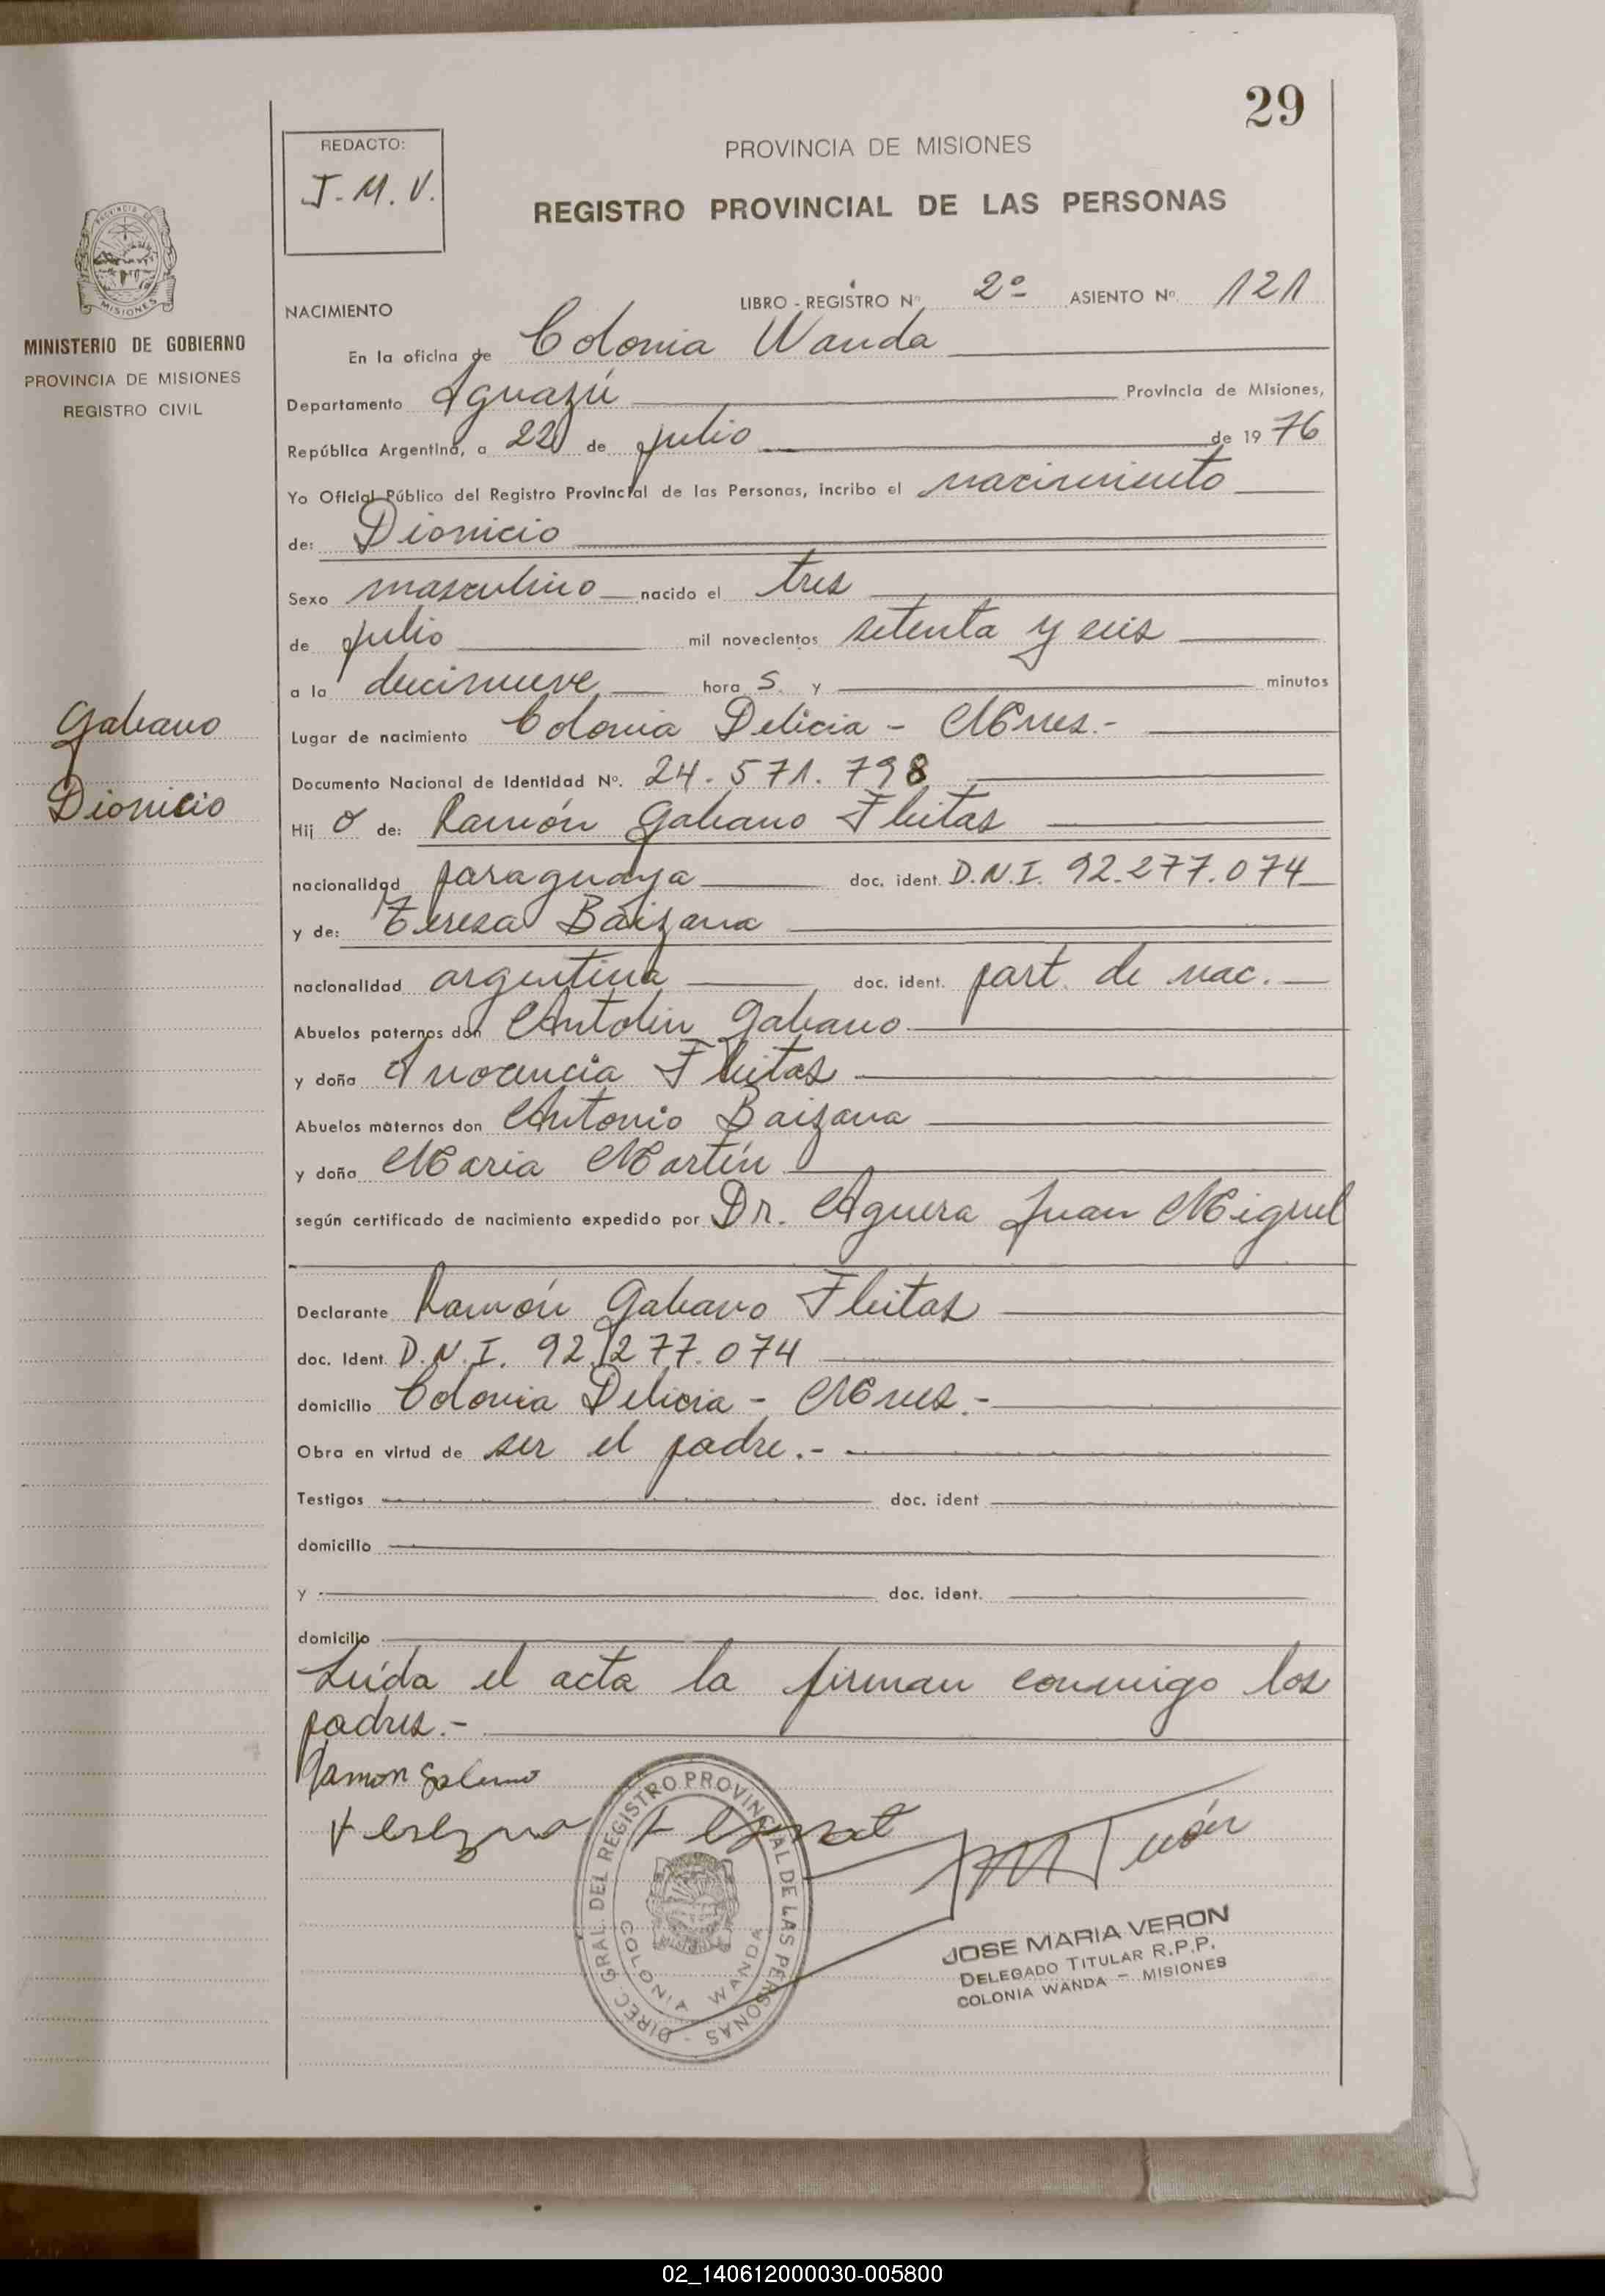 29
REDACTO:
J.M.V.
PROVINCIA DE MISIONES
REGISTRO PROVINCIAL DE LAS PERSONAS
PROVINCIA DE
MISIONES
MINISTERIO DE GOBIERNO
PROVINCIA DE MISIONES
REGISTRO CIVIL
Galeano
Dionicio
NACIMIENTO LIBRO - REGISTRO Nº 2º ASIENTO Nº 121
En la oficina de Colonia Wanda
Departamento Iguazú Provincia de Misiones,
República Argentina, a 22 de julio de 1976
Yo Oficial Público del Registro Provincial de las Personas, incribo el nacimiento
de: Dionicio
Sexo masculino nacido el tres
de julio mil novecientos setenta y seis
a la diecinueve hora s y minutos
Lugar de nacimiento Colonia Delicia - Mnes.-
Documento Nacional de Identidad Nº. 24.571.798
Hij o de: Ramón Galeano Fleitas
nacionalidad paraguaya doc. ident. D.N.I. 92.277.074
y de: Teresa Báizana
nacionalidad argentina doc. ident. part. de nac.
Abuelos paternos don Antolin Galeano
y doña Inocencia Fleitas
Abuelos maternos don Antonio Baizana
y doña Maria Martín
según certificado de nacimiento expedido por Dr. Aguera Juan Miguel
Declarante Ramón Galeano Fleitas
doc. Ident. D.N.I. 92.277.074
domicilio Colonia Delicia - Mnes.-
Obra en virtud de ser el padre.-
Testigos doc. ident
domicilio
y doc. ident.
domicilio
Leída el acta la firman conmigo los
padres.-
Ramon Galeano
DIREC. GRAL. DEL REGISTRO PROVINCIAL DE LAS PERSONAS -
COLONIA WANDA
JOSE MARIA VERON
DELEGADO TITULAR R.P.P.
COLONIA WANDA - MISIONES
02_140612000030-005800